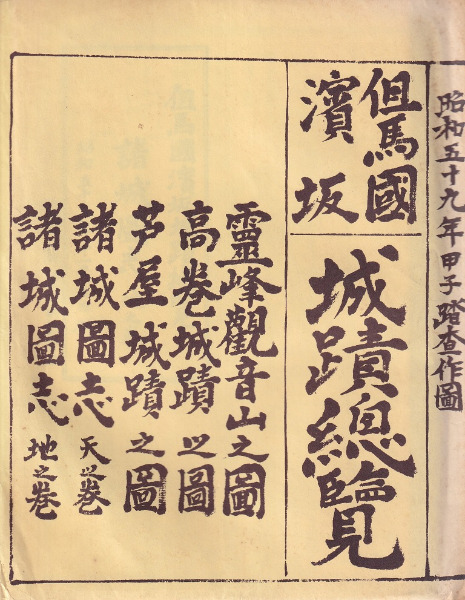 昭和五十九年甲子踏査作圖
但馬國
濱坂
城蹟總覽
靈峰觀音山之圖
高巻城蹟之圖
芦屋城蹟之圖
諸城圖志 天之巻
諸城圖志 地之巻